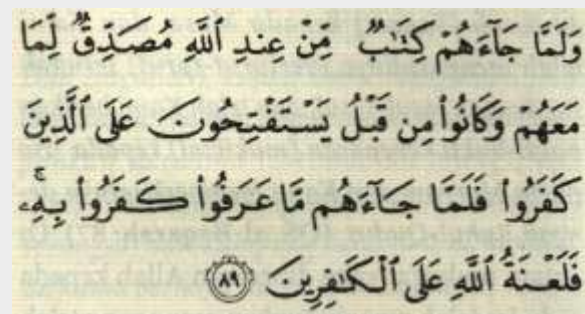 وَلَمَّا جَآءَهُمْ كِتَـٰبٌ مِّنْ عِندِ ٱللَّهِ مُصَدِّقٌ لِّمَا
مَعَهُمْ وَكَانُوا۟ مِن قَبْلُ يَسْتَفْتِحُونَ عَلَى ٱلَّذِينَ
كَفَرُوا۟ فَلَمَّا جَآءَهُم مَّا عَرَفُوا۟ كَفَرُوا۟ بِهِۦۚ
فَلَعْنَةُ ٱللَّهِ عَلَى ٱلْكَـٰفِرِينَ ٨٩